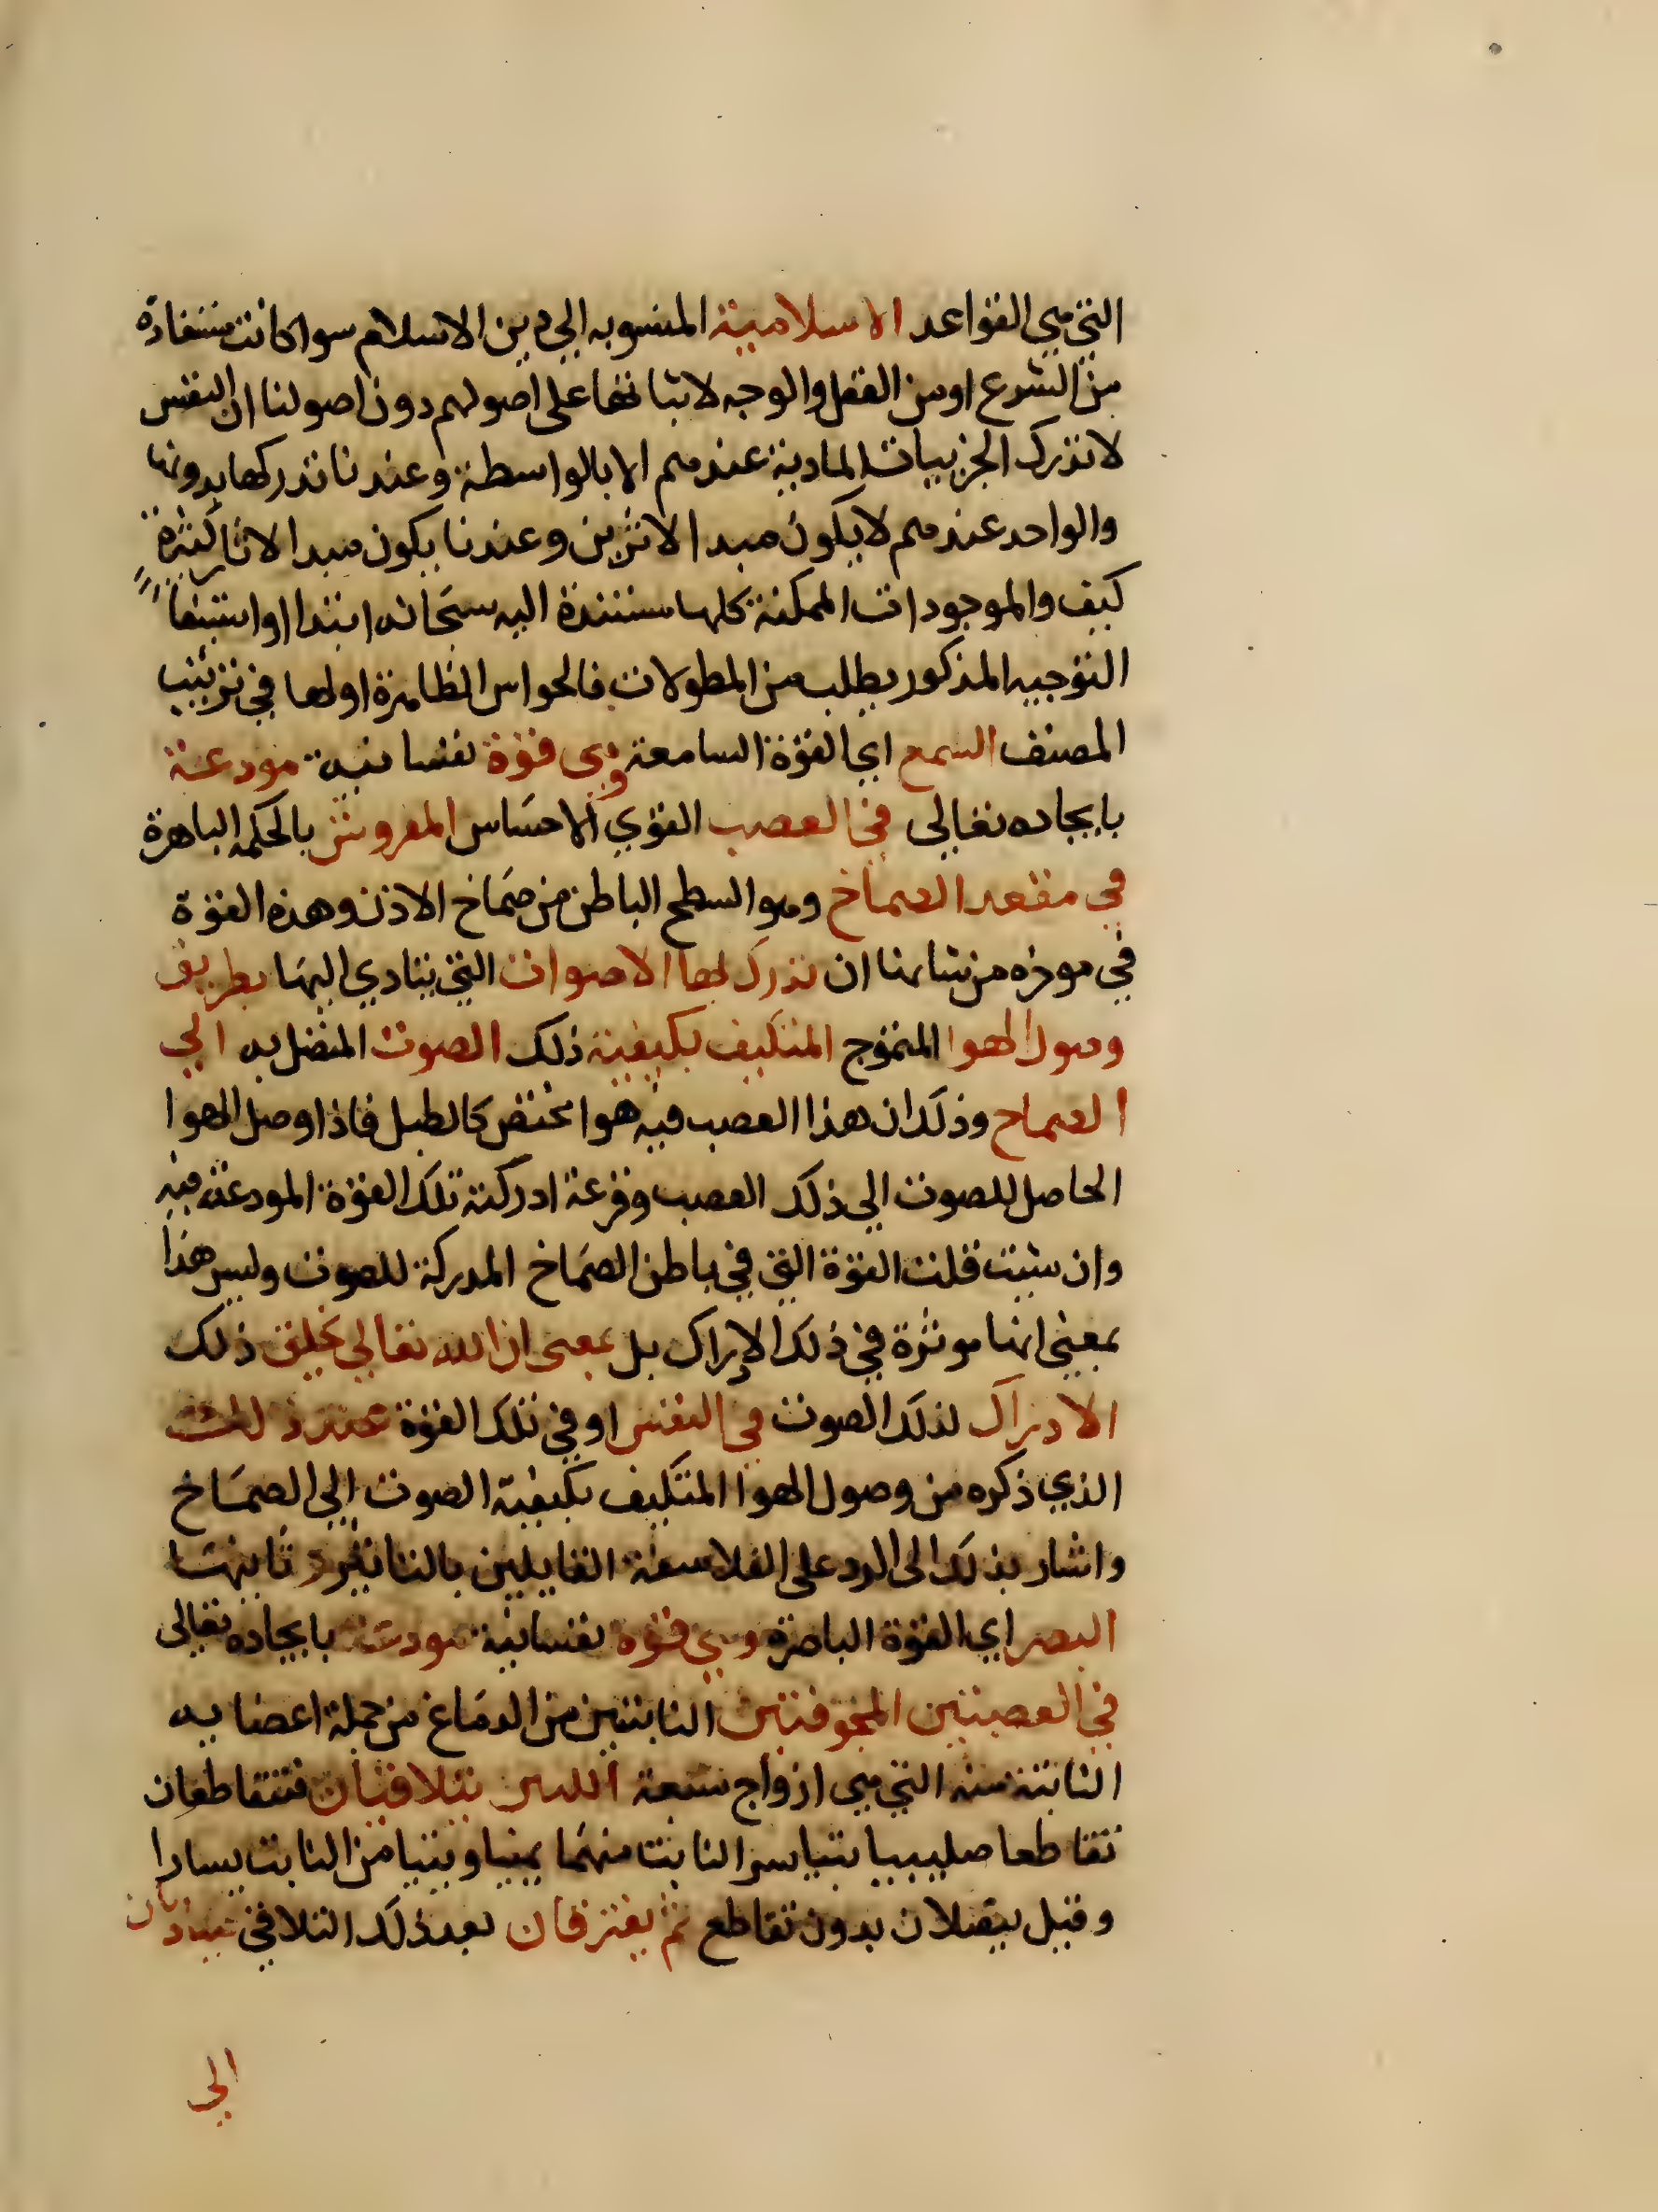 التي هي القواعد الاسلامية المنسوبه الي دين الاسلام سوا كانت مستفادة
من الشرع او من العقل والوجه لابتنائها على اصولهم دون اصولنا ان النفس
لا تدرك الجزييات المادية عندهم الا بالواسطة وعندنا تدركها بدونها
والواحد عندهم لا يكون مبدا لاثرين وعندنا يكون مبدا لاثار كثيرة
كيف والموجودات الممكنة كلها مستندة اليه سبحانه ابتدا او استيفا
التوجيه المذكور يطلب من المطولات فالحواس الظاهرة اولها في ترتيب
المصنف السمع اي القوة السامعة وهي قوة نفسانيه مودعة
بايجاده تعالى في العصب القوي الاحساس المفروش بالحكمة الباهرة
في مقعر الصماخ وهو السطح الباطن من صماخ الاذن وهذه القوة
في موخره من شانها ان تدرك بها الاصوات التي يتادي اليها بطريق
وصول الهوا المتموج المتكيف بكيفية ذلك الصوت المتصل به الي
الصماخ وذلك ان هذا العصب فيه هوا محتقن كالطبل فاذا وصل الهوا
الحاصل للصوت الي ذلك العصب وقرعه ادركته تلك القوة المودعة فيه
وان شيت قلت القوة التي في باطن الصماخ المدركة للصوت وليس هذا
بمعني انها موثرة في ذلك الادراك بل بمعنى ان الله تعالي يخلق ذلك
الادراك لذلك الصوت في النفس او في تلك القوة عند ذلك
الذي ذكره من وصول الهوا المتكيف بكيفية الصوت الي الصماخ
واشار بذلك الى الرد على الفلاسفة القايلين بالتاثير وثانيها
البصر اي القوة الباصرة وهي قوة نفسانية مودعة بايجاده تعالى
في العصبتين المجوفتين النابتتين من الدماغ من جملة اعصابه
النابتة منه التي هي ازواج سبعة اللتين يتلاقيان فتتقاطعان
تقاطعا صليبيا يتياسر النابت منهما يمينا ويتيامن النابت يسارا
وقيل يتصلان بدون تقاطع ثم يفترقان بعد ذلك التلاقي فيتاديان
الي